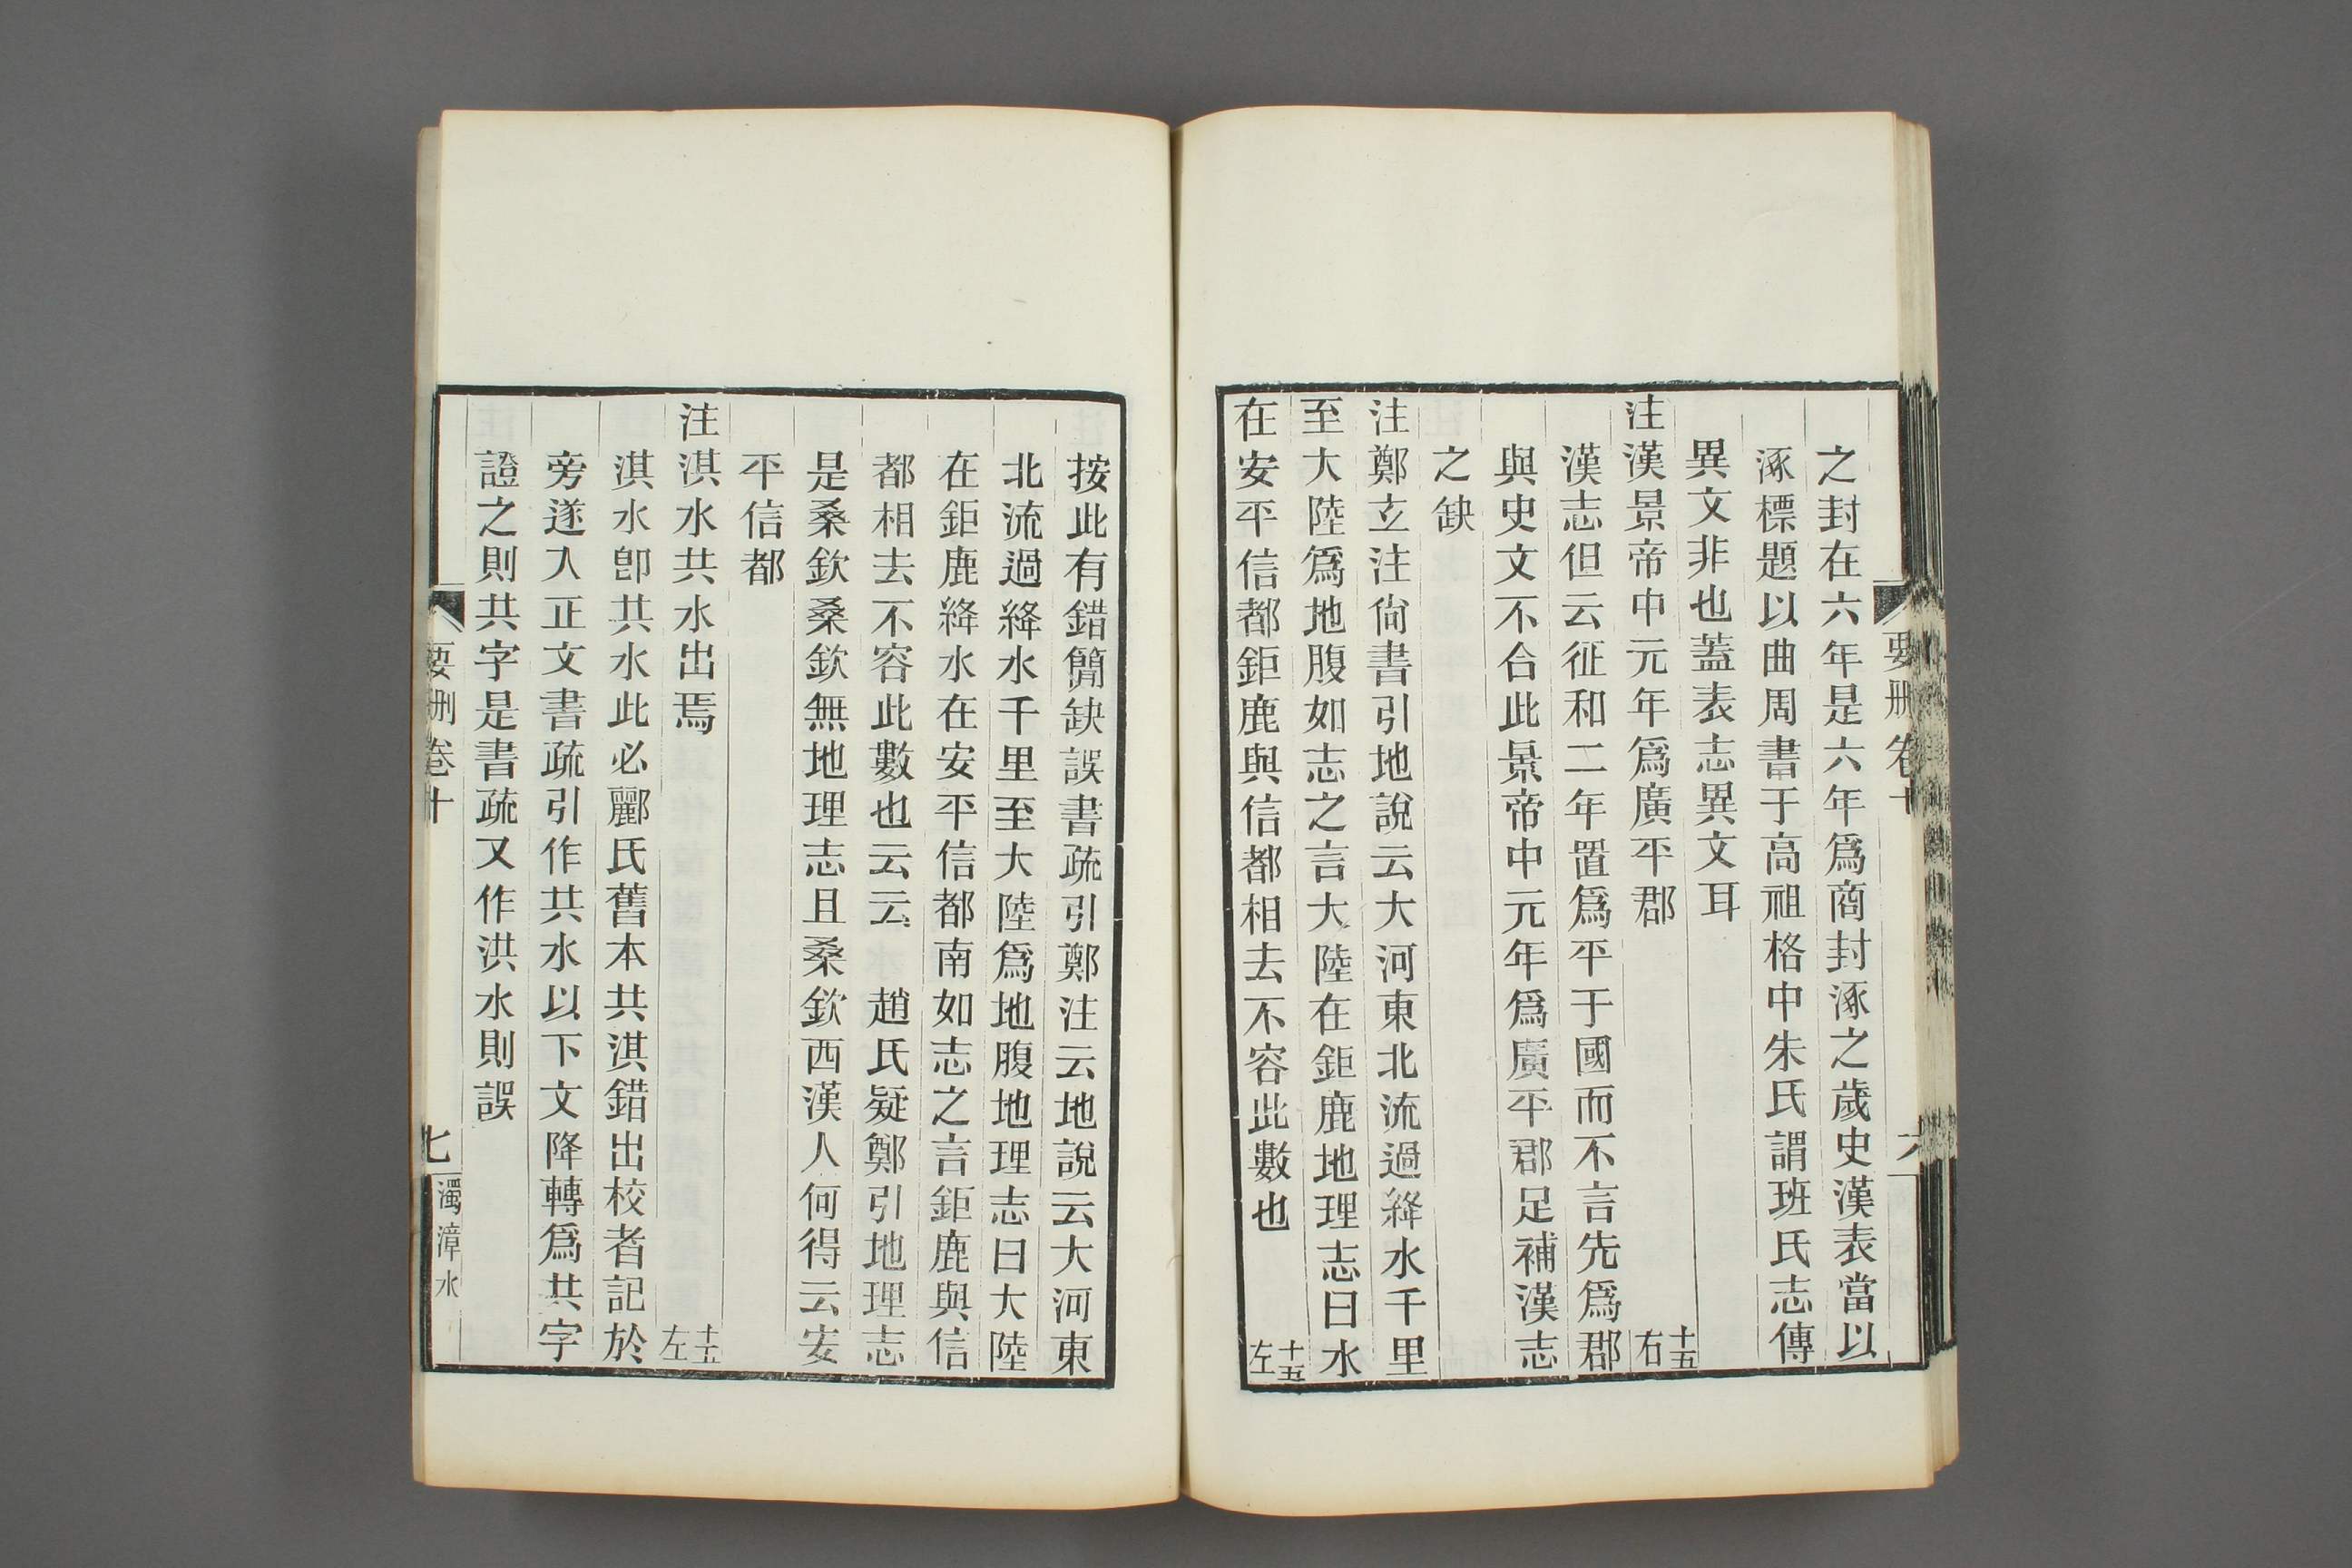 之封在六年是六年爲商封涿之歲史漢表當以
涿標題以曲周書于高祖格中朱氏謂班氏志傳
異文非也蓋表志異文耳
注漢景帝中元年爲廣平郡 十五右
漢志但云征和二年置爲平于國而不言先爲郡
與史文不合此景帝中元年爲廣平郡足補漢志
之缺
注鄭玄注尙書引地說云大河東北流過絳水千里
至大陸爲地腹如志之言大陸在鉅鹿地理志曰水
在安平信都鉅鹿與信都相去不容此數也 十五左
要刪卷十
六
按此有錯簡缺誤書疏引鄭注云地說云大河東
北流過絳水千里至大陸爲地腹地理志曰大陸
在鉅鹿絳水在安平信都南如志之言鉅鹿與信
都相去不容此數也云云 趙氏疑鄭引地理志
是桑欽桑欽無地理志且桑欽西漢人何得云安
平信都
注淇水共水出焉 十五左
淇水卽共水此必酈氏舊本共淇錯出校者記於
旁遂入正文書疏引作共水以下文降轉爲共字
證之則共字是書疏又作洪水則誤
要刪卷十
七
濁漳水